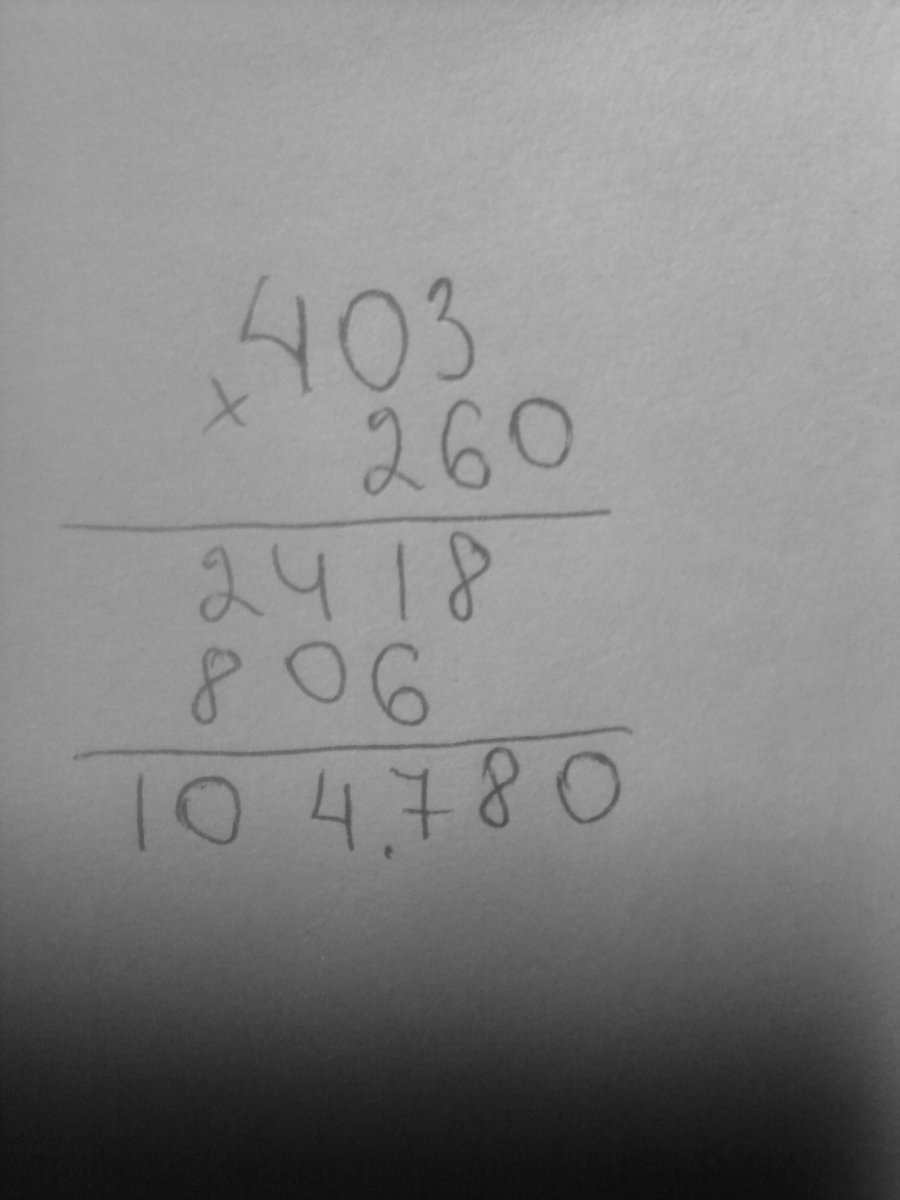 403
× 260
2418
806
104.780